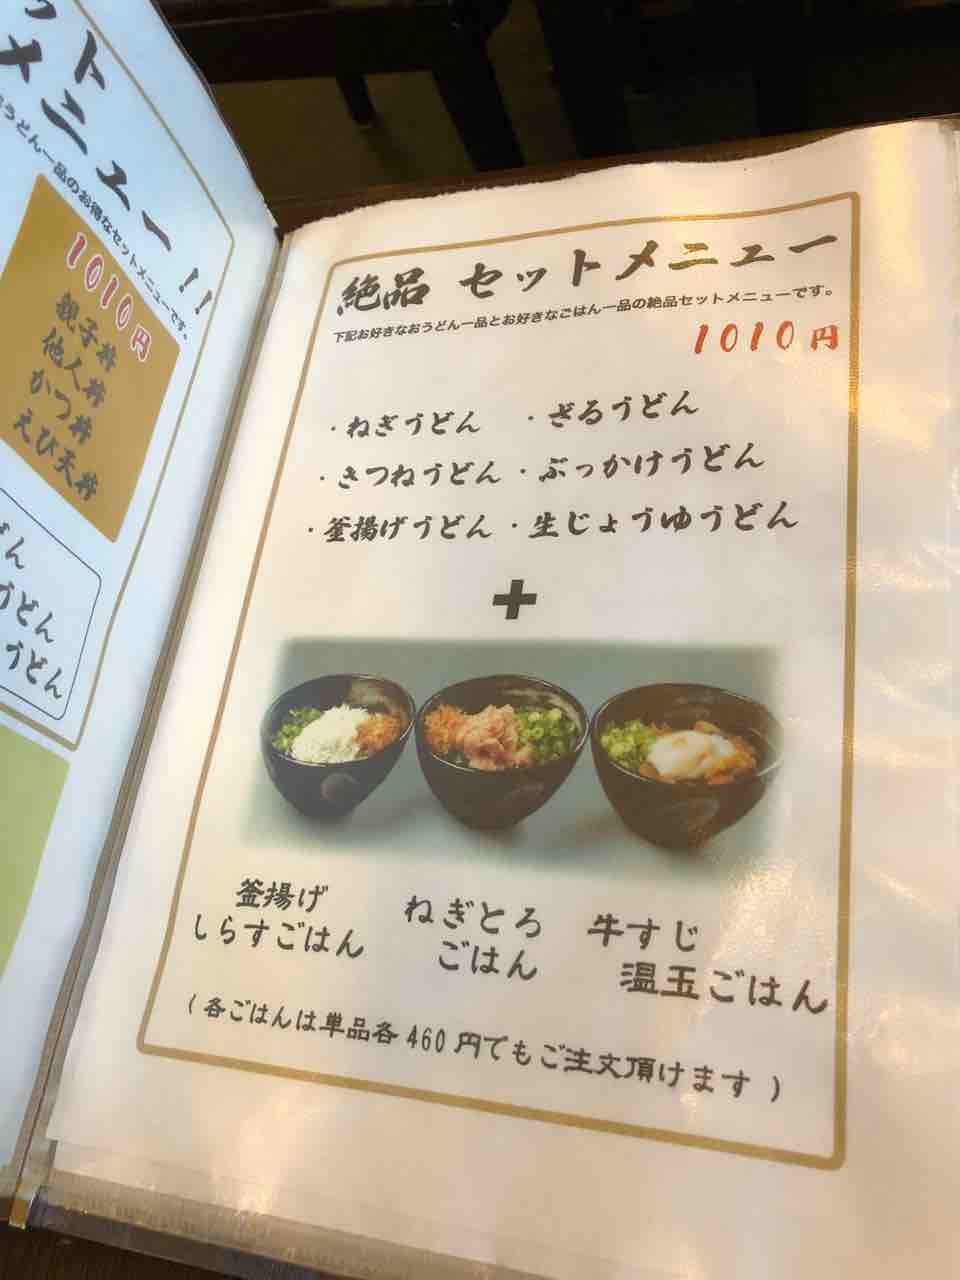 ット
メニュー!!
うどん一品のお得なセットメニューです。
1010円
親子丼
他人丼
かつ丼
えび天丼
どん
うどん
うどん
絶品 セットメニュー
下記お好きなおうどん一品とお好きなごはん一品の絶品セットメニューです。
1010円
・ねぎうどん ・ざるうどん
・きつねうどん ・ぶっかけうどん
・釜揚げうどん ・生じょうゆうどん
+
釜揚げ
しらすごはん
ねぎとろ
ごはん
牛すじ
温玉ごはん
(各ごはんは単品各460円でもご注文頂けます)